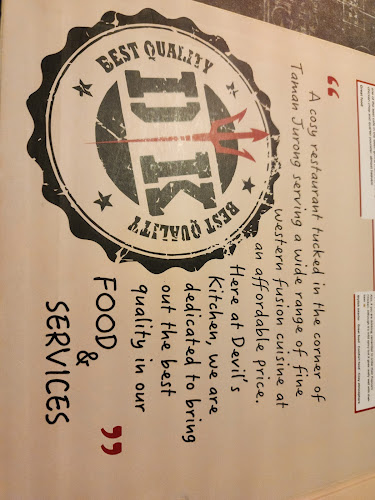 BEST QUALITY
DK
BEST QUALITY
“
A cosy restaurant tucked in the corner of
Taman Jurong serving a wide range of fine
western fusion cuisine at
an affordable price.
Here at Devil's
Kitchen, we are
dedicated to bring
out the best
quality in our
FOOD
&
SERVICES
”